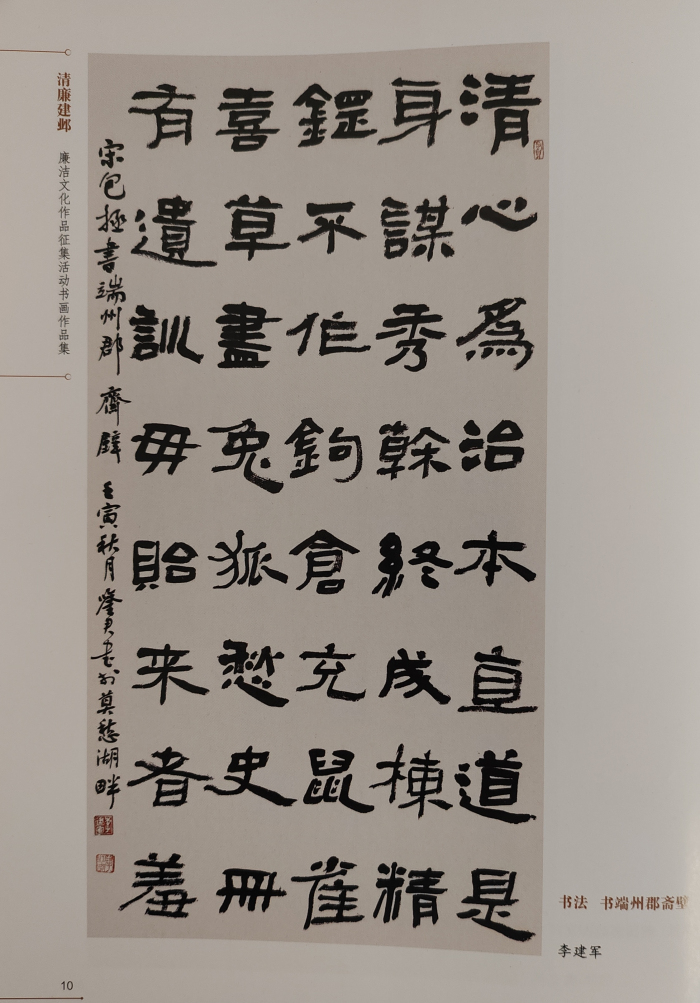 清廉建邺
廉洁文化作品征集活动书画作品集
清心爲治本直道是
身謀秀榦終成棟精
鋼不作鉤倉充鼠雀
喜草盡兔狐愁史冊
有遺訓毋貽来者羞
宋包拯書端州郡齋壁 壬寅秋月 書於莫愁湖畔
书法 书端州郡斋壁
李建军
10